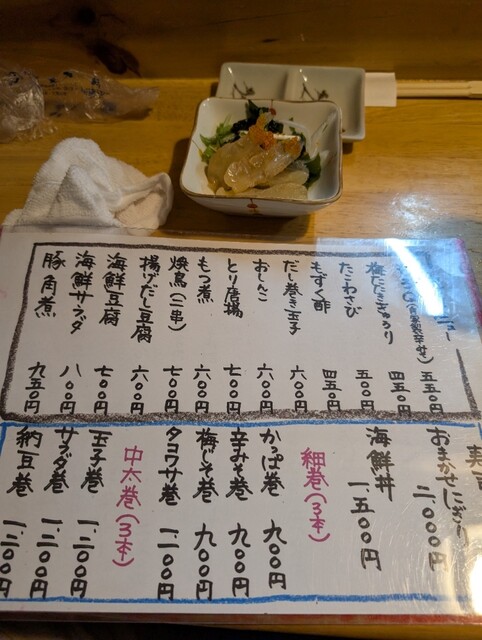 ニュー
(自家製辛みそ) 五五〇円
梅たたききゅうり 四五〇円
たこわさび 五〇〇円
もずく酢 四五〇円
だし巻き玉子 六〇〇円
おしんこ 六〇〇円
とり唐揚 七〇〇円
もつ煮 六〇〇円
焼鳥(二串) 七〇〇円
揚げだし豆腐 六〇〇円
海鮮豆腐 七〇〇円
海鮮サラダ 八〇〇円
豚角煮 九五〇円
寿司
おまかせにぎり 二、〇〇〇円
海鮮丼 一、五〇〇円
細巻(3本)
かっぱ巻 九〇〇円
辛みそ巻 九〇〇円
梅じそ巻 九〇〇円
タコワサ巻 一、二〇〇円
中太巻(3本)
玉子巻 一、二〇〇円
サラダ巻 一、二〇〇円
納豆巻 一、二〇〇円